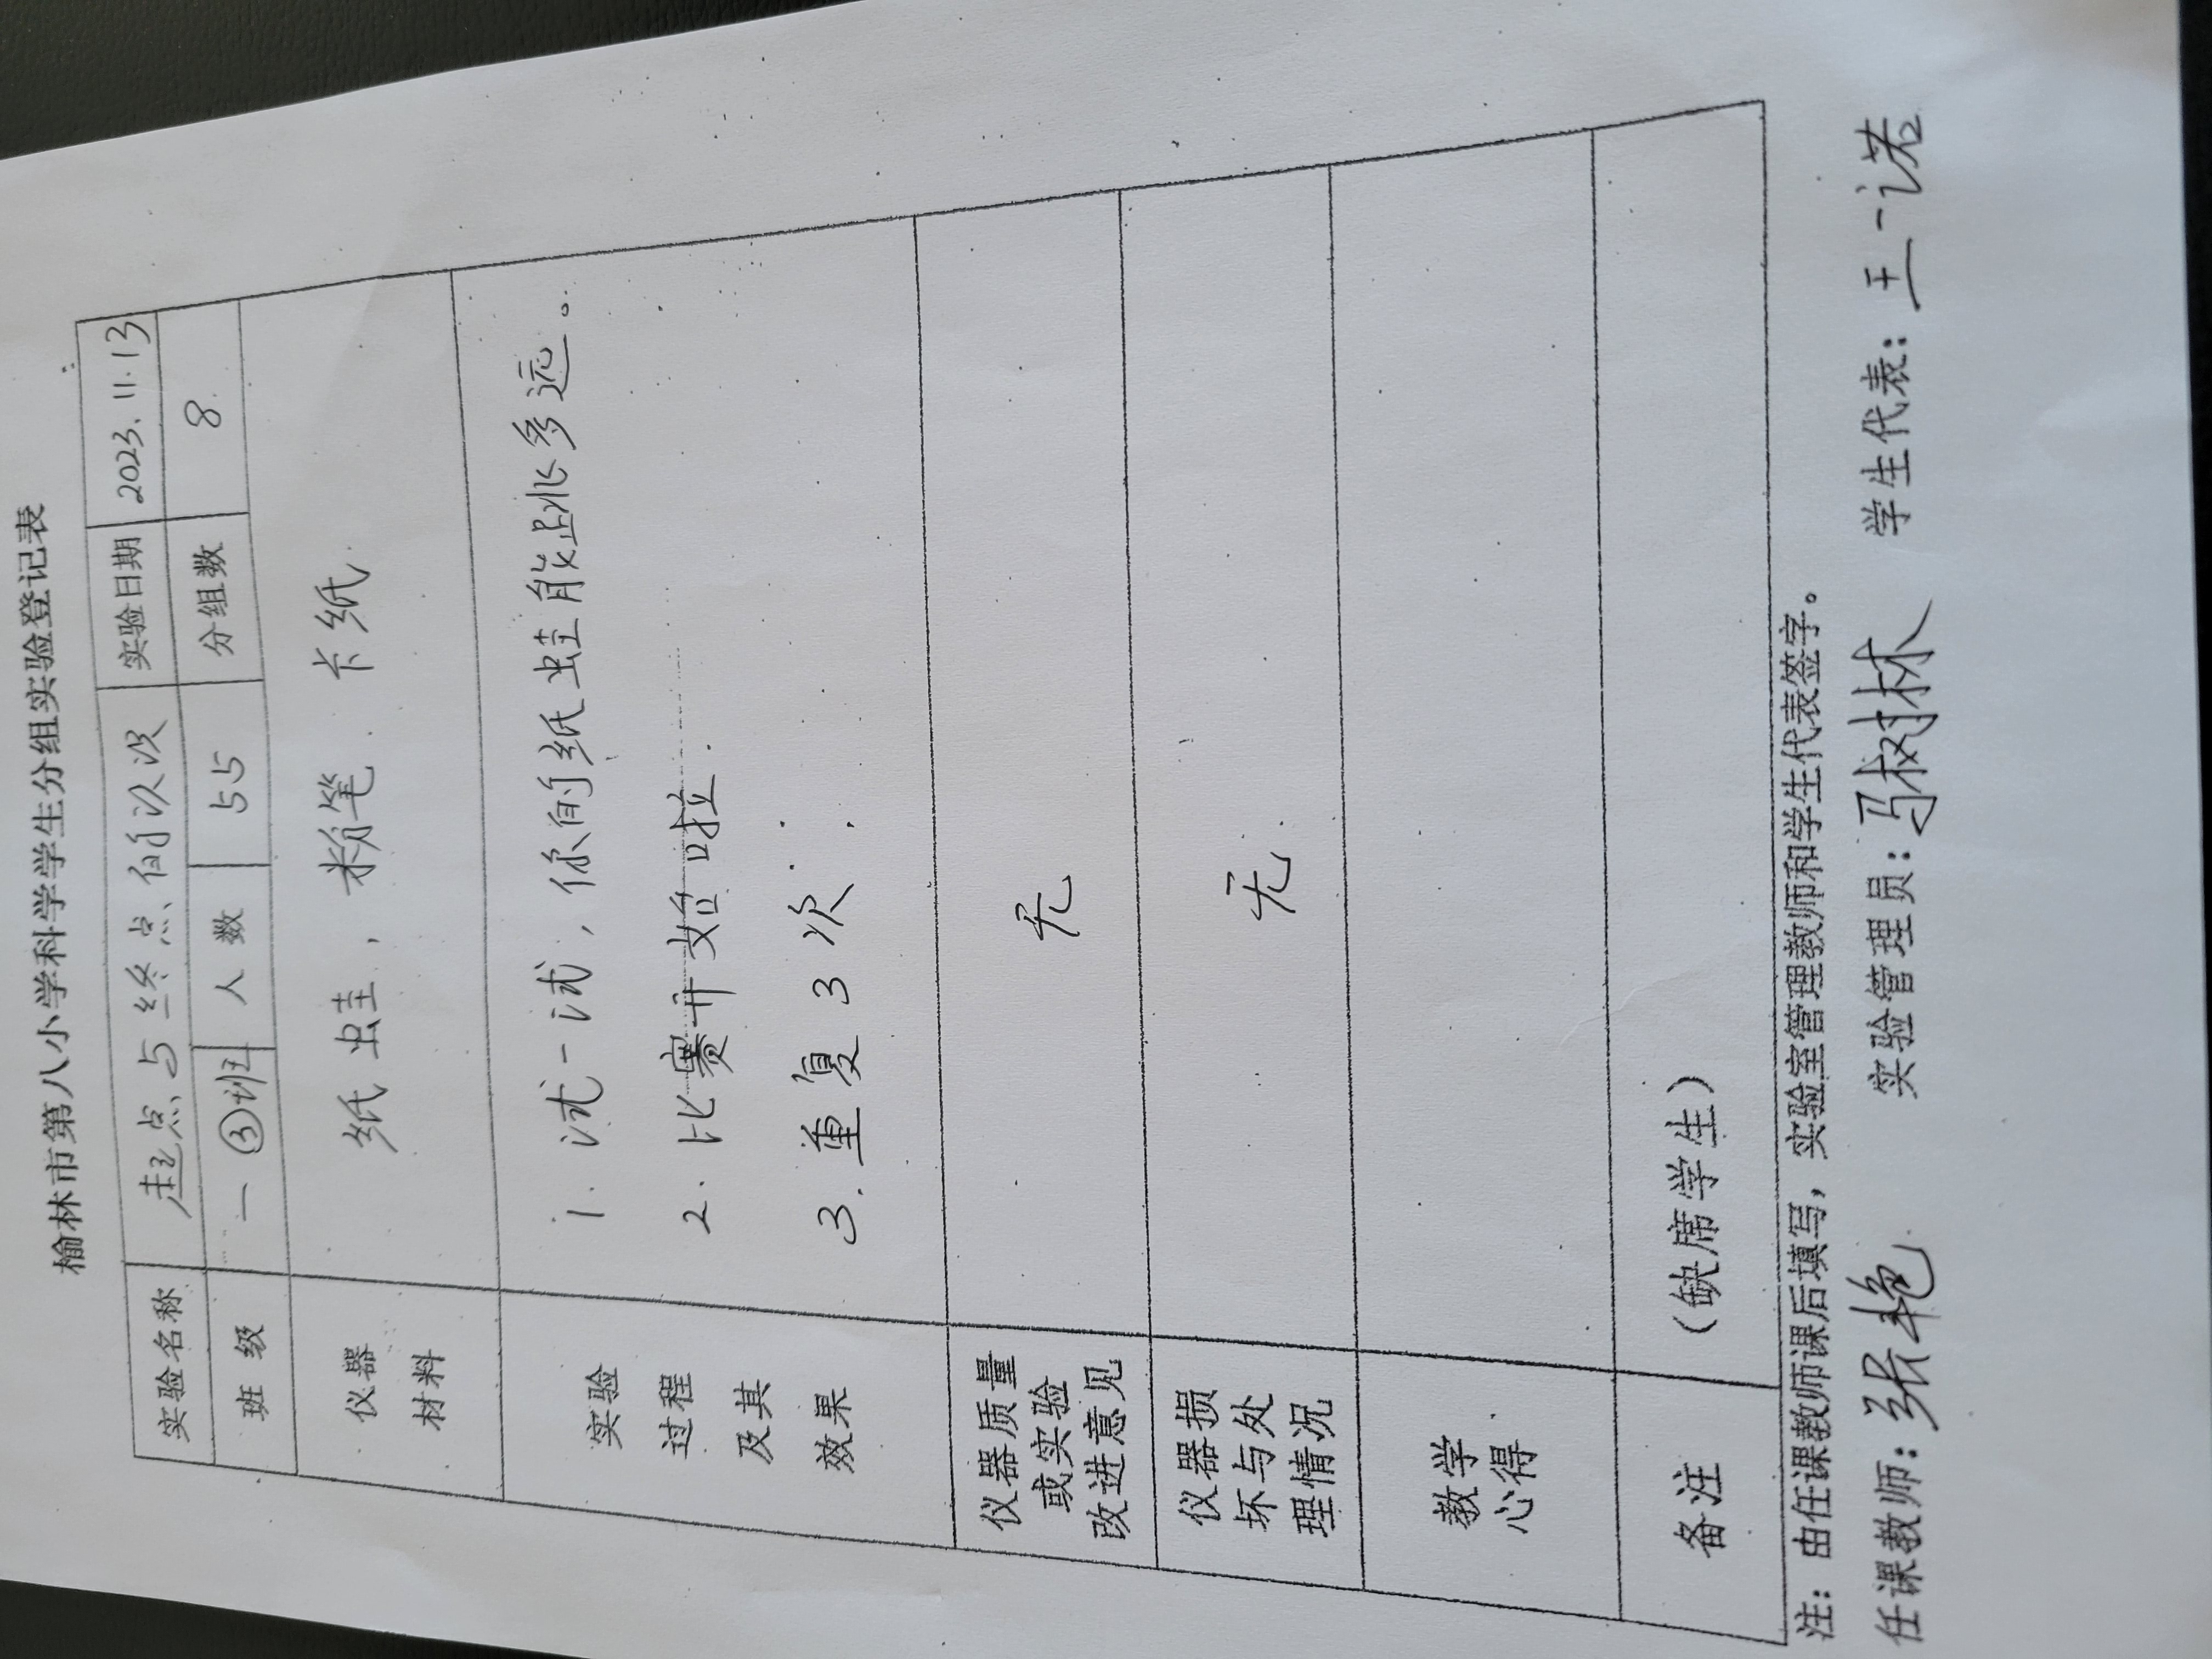 榆林市第八小学科学学生分组实验登记表
实验名称 起点与终点的认识 实验日期 2023.11.13
班 级 一③班 人 数 55 分组数 8
仪器
材料
纸蛙, 粉笔. 卡纸.
实验
过程
及其
效果
1. 试一试, 你的纸蛙能跳多远。
2. 比赛开始啦.
3. 重复3次.
仪器质量
或实验
改进意见
无
仪器损
坏与处
理情况
无.
教学
心得
备注
(缺席学生)
注: 由任课教师课后填写, 实验室管理教师和学生代表签字。
任课教师: 张艳 实验管理员: 马树林 学生代表: 王一诺